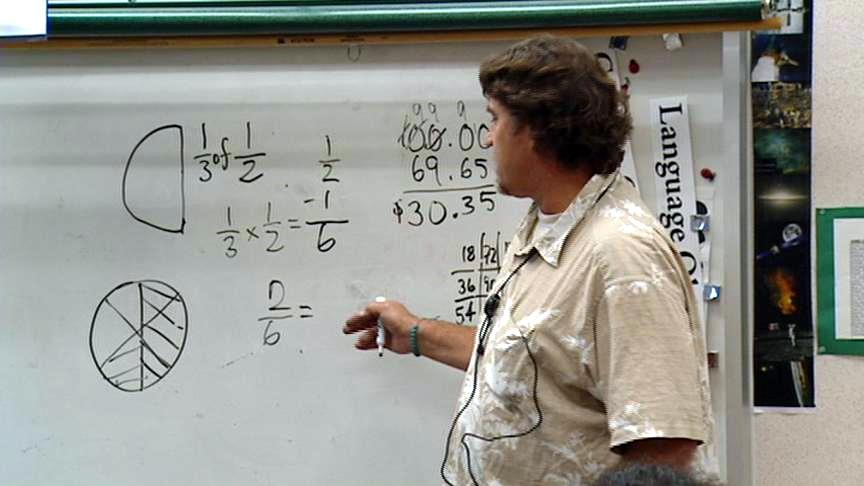 1/3 of 1/2
1/2
1/3 × 1/2 = -1/6
2/6 =
100.00
69.65
$30.35
18 72
36
54
Language